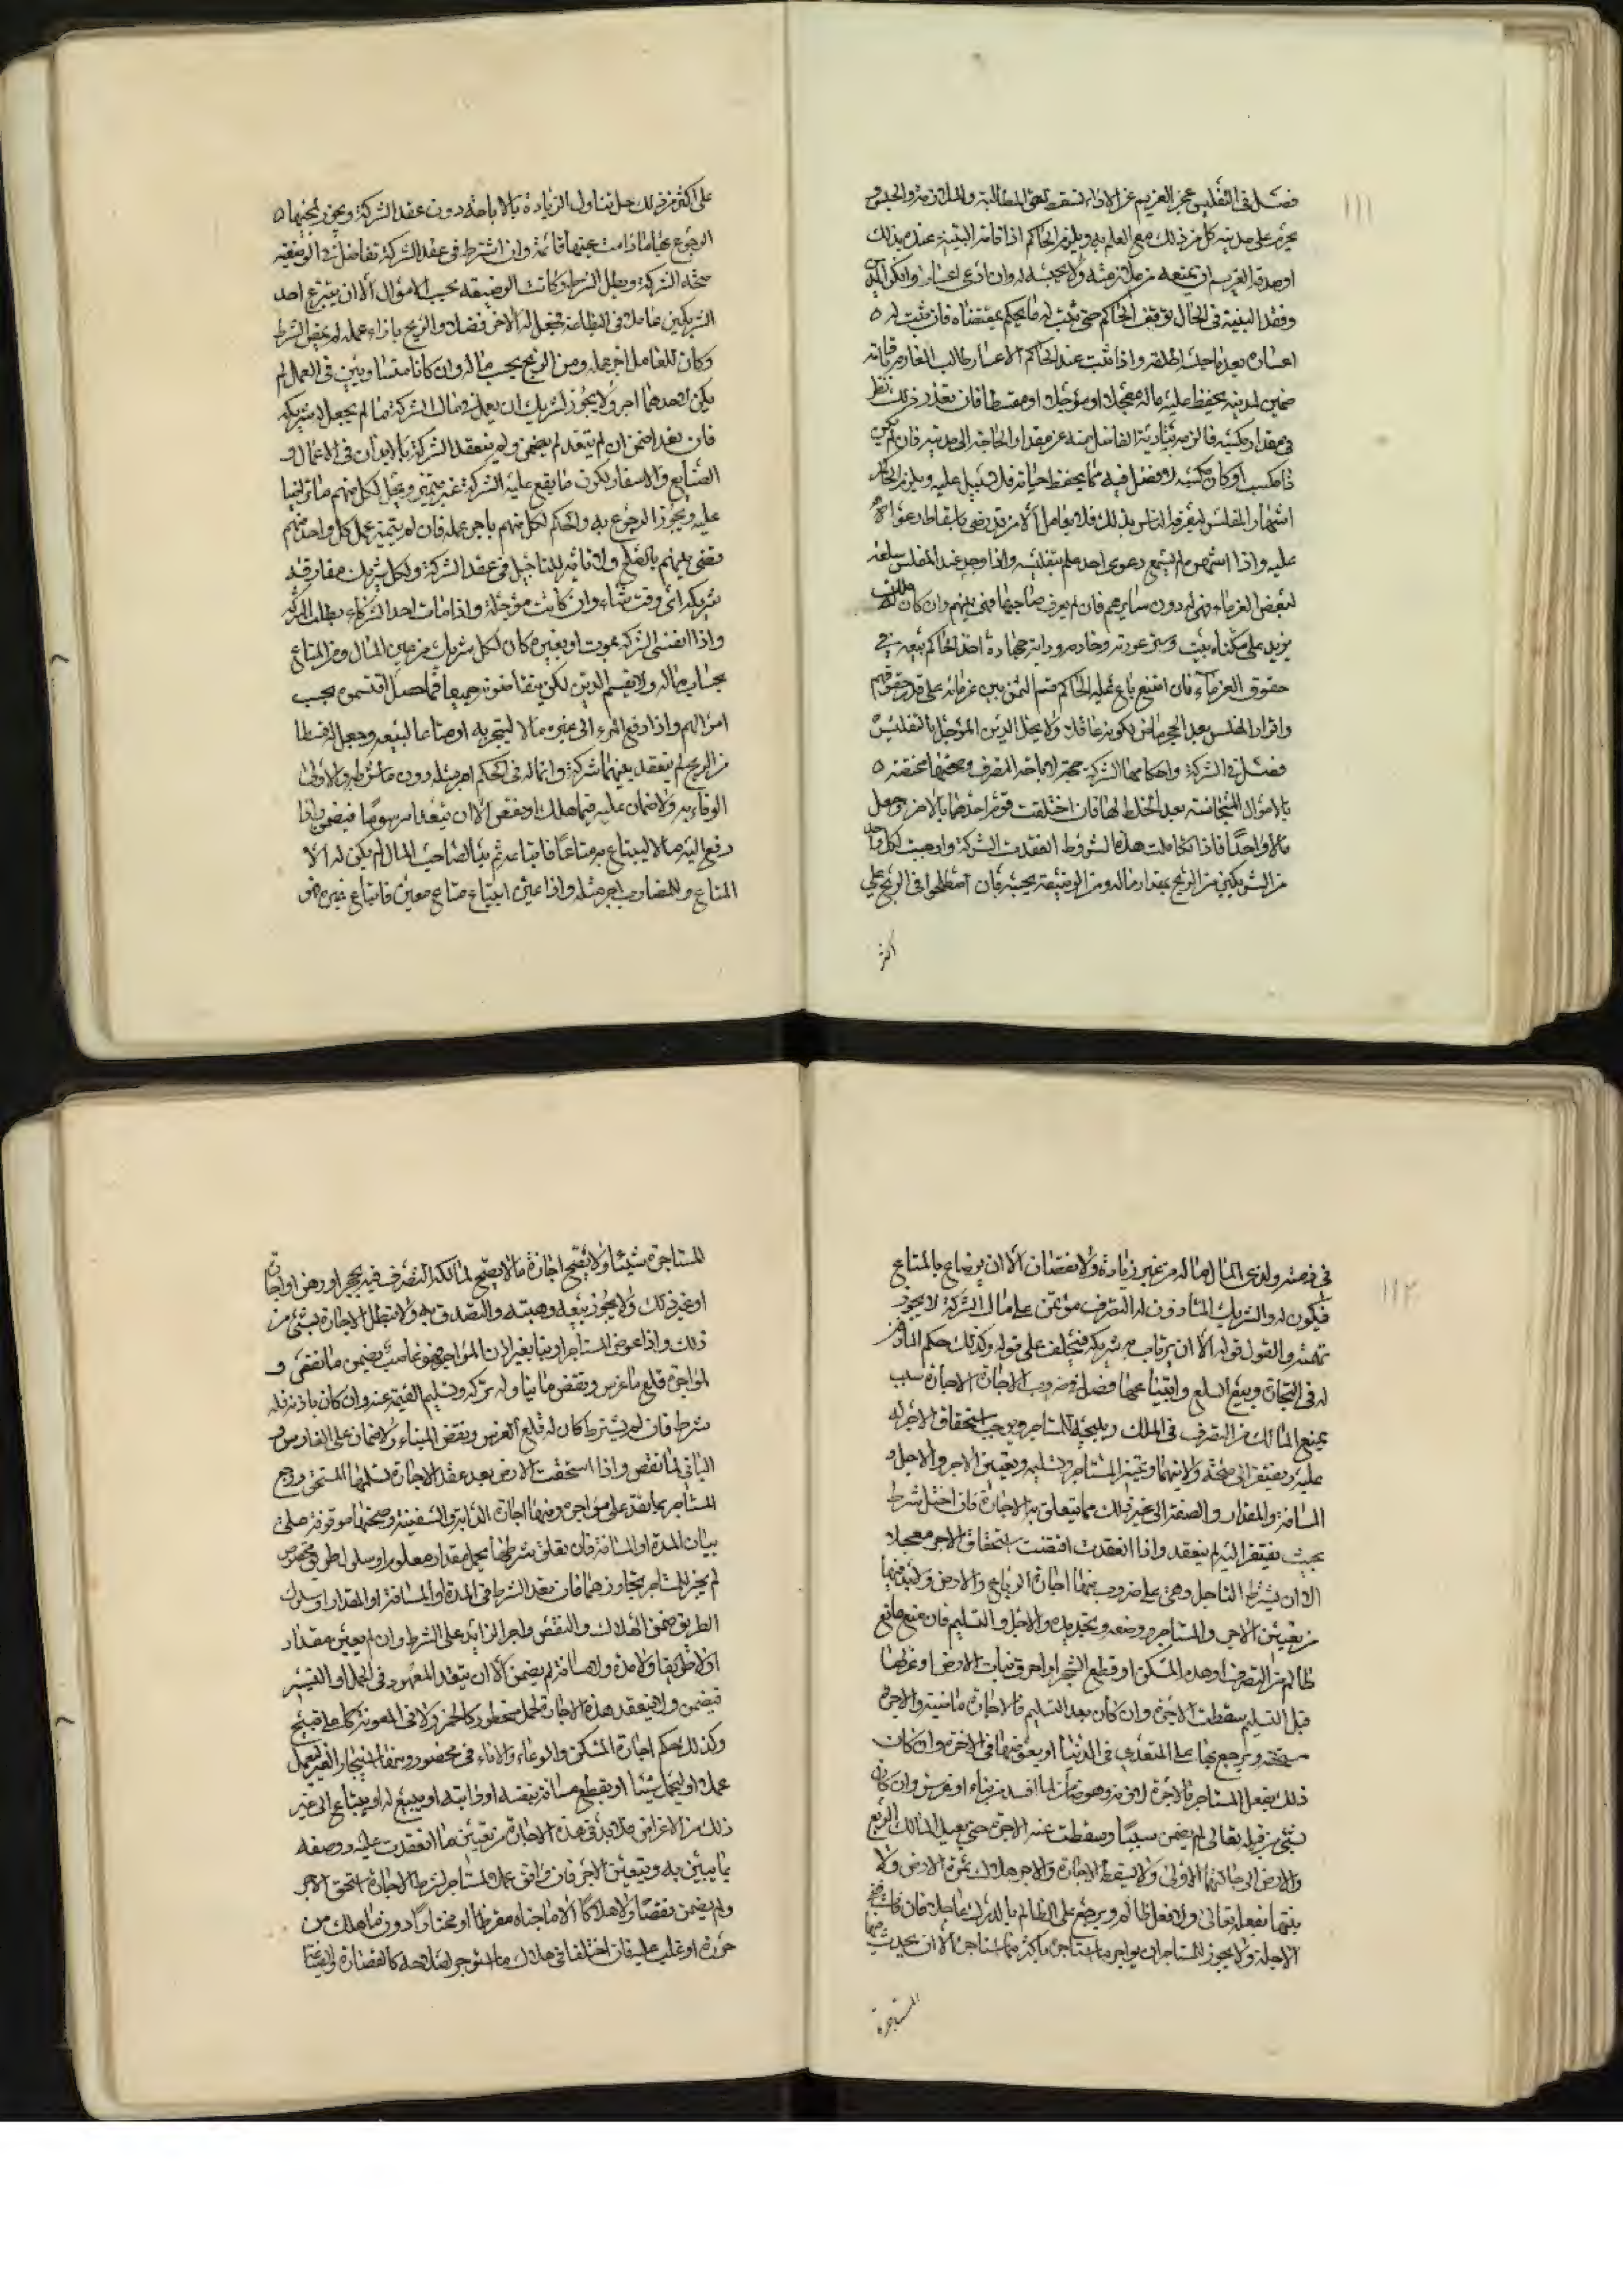 ١١١
فصل في التفليس عجز الغريم عن الاداء يسقط المطالبة والملازمة والحبس و
يحرم على مدينه كل من ذلك مع العلم به ويلزم الحاكم اذا قامت البينة عنده بذلك
او صدقه الغريم ان يمنعه من ملازمته ولا يحبسه له وان ادعى اعسارا وانكره
وفقد البينة في الحال توقف الحاكم حتى يثبت له ما يحكم بمقتضاه فان ثبت له
اعساره بعد ما حبسه اطلقه واذا ثبت عند الحاكم الاعسار طالب الغارم باقامة
ضمين لمدينه بحفظ عليه ماله معجلا او مؤجلا او مقسطا فان تعذر ذلك نظر
في مقدار مكسبه فالزمه تأدية الفاضل منه عن مقدار الحاجة الى مدينه فان لم يكن
ذا مكسب او كان مكسبه لا فضل فيه مما يحفظ حياته فلا سبيل عليه ويلزم الحاكم
اشهار المفلس ليعرفه الناس بذلك فلا يعامل الا من قد رضي باسقاط دعواه
عليه واذا اشهره لم يسمع دعوى احد علم بتفليسه واذا وجد عند المفلس سلعة
لبعض الغرماء فهي له دون سايرهم فان لم يعرف صاحبها فهي بينهم وان كان
يزيد على سكناه بيت وستر عورته وخادمه ودابة جهاده اخذ الحاكم ببيعه في
حقوق الغرماء فان امتنع باع عليه الحاكم وقسم الثمن بين غرمائه على قدر حقوقهم
واقرار المفلس بعد الحجر ماض لكونه عاقلا ولا يحل الدين المؤجل بالتفليس
فصل في الشركة واحكامها الشركة جهة لاباحة التصرف وصحتها مختصة
بالاموال المتجانسة بعد الخلط لها فان اختلفت قوم احدهما بالاخر وجعل
مالا واحدا فاذا تكاملت هذه الشروط انعقدت الشركة واوجبت لكل واحد
من الشريكين من الربح بمقدار ماله ومن الوضيعة بحسبه فان اصطلحوا في الربح على
اكثر
على اكثر من ذلك حل تناول الزيادة بالاباحة دون عقد الشركة ويجوز لمبيحها
الرجوع بها ما دامت عينها قائمة وان اشترط في عقد الشركة تفاضل في الوضيعة
صحة الشركة وبطل الشرط وكانت الوضيعة بحسب الاموال الا ان يتبرع احد
الشريكين عاملا في البضاعة فجعل له الاخر فضلا في الربح بازاء عمله لم يمض الشرط
وكان للعامل اجر عمله ومن الربح بحسب ماله وان كانا متساويين في العمل لم
يكن لاحدهما اجر ولا يجوز لشريك ان يعمل في مال الشركة ما لم يجعل له شريكه
فان تعدا ضمن وان لم يتعد لم يضمن ولا تنعقد الشركة بالابدان في الاعمال و
الصنايع والاسفار لكون ما يقع عليه الشركة غير متميز ويحل لكل منهم ما تراضيا
عليه ويجوز الرجوع به والحكم لكل منهم باجر عمله فان لم يتميز عمل كل واحد منهم
يقضى بينهم بالصلح ولا تاثير للتاجيل في عقد الشركة ولكل شريك مفارقة
شريكه اي وقت شاء وان كانت مؤجلة واذا مات احد الشركاء بطلت الشركة
واذا انفسخ الشركة بموت او بغيره كان لكل شريك من عين المال ومن المتاع
بحساب ماله ولا يقسم الدين لكن يتقاضونه جميعا فما حصل اقتسموه بحسب
اموالهم واذا دفع المرء الى غيره مالا ليتجر به او متاعا لبيعه وجعل له قسطا
من الربح لم ينعقد بينهما شركة وانما له في الحكم اجر مثله دون ما شرط والاولى
الوفاء به ولا ضمان عليه فيما هلك او نقص الا ان يتعدا مرسوما فيضمن واذا
دفع اليه مالا ليبتاع به متاعا فابتاعه ثم بدا لصاحب المال لم يكن له الا
المتاع وللمضارب اجر مثله واذا عين ابتياع متاع معين فابتاع غيره فهو
١١٢
في ذمته ولذي المال ماله من غير زيادة ولا نقصان الا ان يرضى بالمتاع
فيكون له والشريك المأذون له التصرف مؤتمن على مال الشركة لا يجوز
تهمته والقول قوله الا ان يرتاب به شريكه فيحلف على قوله وكذلك حكم المأذون
له في التجارة وبيع السلع وابتياعها فصل في ضروب الاجارة الاجارة سبب
يمنع المالك من التصرف في الملك ويبيحه للمستاجر ويوجب استحقاق الاجر له
عليه ويفتقر الى صحة ولايتهما وتميز المستاجر وتسليمه وتعيين الاجر والاجل و
المسافة والمقدار والصفة الى غير ذلك مما يتعلق به الاجارة فان اختل شرط
بحيث يفتقر اليه لم ينعقد واذا انعقدت اقتضت استحقاق الاجر معجلا
الا ان يشترط التاجيل وهي على ضروب منها اجارة الرباع والارض
من تعيين الاجر والمستاجر ووصفه وتحديده والاجل والتسليم فان منع مانع
ظالم من التصرف او هدم المسكن او قطع الشجر او احرق نبات الارض او غرقها
قبل التسليم سقطت الاجرة وان كان بعد التسليم فالاجارة ماضية والاجرة
مستحقة ويرجع بها على المتعدي في الدنيا او يعوض بها في الاخرة وان كان
ذلك بفعل المستاجر فالاجرة لازمة وهو ضامن لما افسد من بناء او غرس وان كان
بشيء من قبله تعالى لم يضمن شيئا وسقطت عنه الاجرة حتى يعيد المالك الربع
والارض الى حالتهما الاولى ولا يسقط الاجارة والاجر هلاك ثمرة الارض ولا
بفعله تعالى ولا فعل ظالم ويرجع على الظالم بالدرك عاجلا فان فات
الاجلة ولا يجوز للمستاجر ان يواجر ما استاجره باكثر مما استاجره الا ان يحدث
المستاجرة
المستاجرة شيئا ولا يصح اجارة ما لا يصح لمالكه التصرف فيه بحجر او رهن او
او غير ذلك ولا يجوز بيعه وهبته والتصدق به ولا تبطل الاجارة بشيء من
ذلك واذا غرس المستاجر او بنا بغير اذن المؤاجر فهو غاصب يضمن ما نقص و
لمؤاجره قلع ما غرس ونقض ما بنا وله تركه وتسليم القيمة عنه وان كان باذنه فله
شرطه فان لم يشترط كان له قلع الغرس ونقض البناء ولا ضمان على الغارس و
الباني لما نقص واذا استحقت الارض بعد عقد الاجارة تسلمها المستحق ورجع
المستاجر بما نقد على مؤاجره ومنها اجارة الدابة والسفينة وصحتها موقوفة على
بيان المدة او المسافة فان تعلق شرطها بحمل مقدار معلوم او سلوك طريق مخصوص
لم يجز للمستاجر تجاوزهما فان تعدا الشرط في المدة او المسافة او المقدار او سلوك
الطريق ضمن الهلاك والنقص واجر الزايد على الشرط وان لم يعين مقدار
ولا طريقا ولا مدة ولا مسافة لم يضمن الا ان يتعد المعهود في الحمل او السير
فيضمن ولا تنعقد هذه الاجارة لحمل محظور كالخمر ولا في المعونة على قبيح
وكذلك حكم اجارة المسكن والوعاء والاناء في محظور ومنها استيجار الغير ليعمل
عملا او ليحمل شيئا او يقطع مسافة بنفسه او دابته او يبيع له او يبتاع الى غير
ذلك من الاغراض فلا بد في هذه الاجارة من تعيين ما انعقدت عليه ووصفه
بما يبين به ويتعين الاجر فان وافق عمل المستاجر لشرط الاجارة استحق الاجر
ولم يضمن نقصا ولا هلاكا الا ما جناه مفرطا او مختارا دون ما هلك من
حرزه او غلب عليه فان اختلفا في هلاك ما استوجر لصلاحه كالقصارة